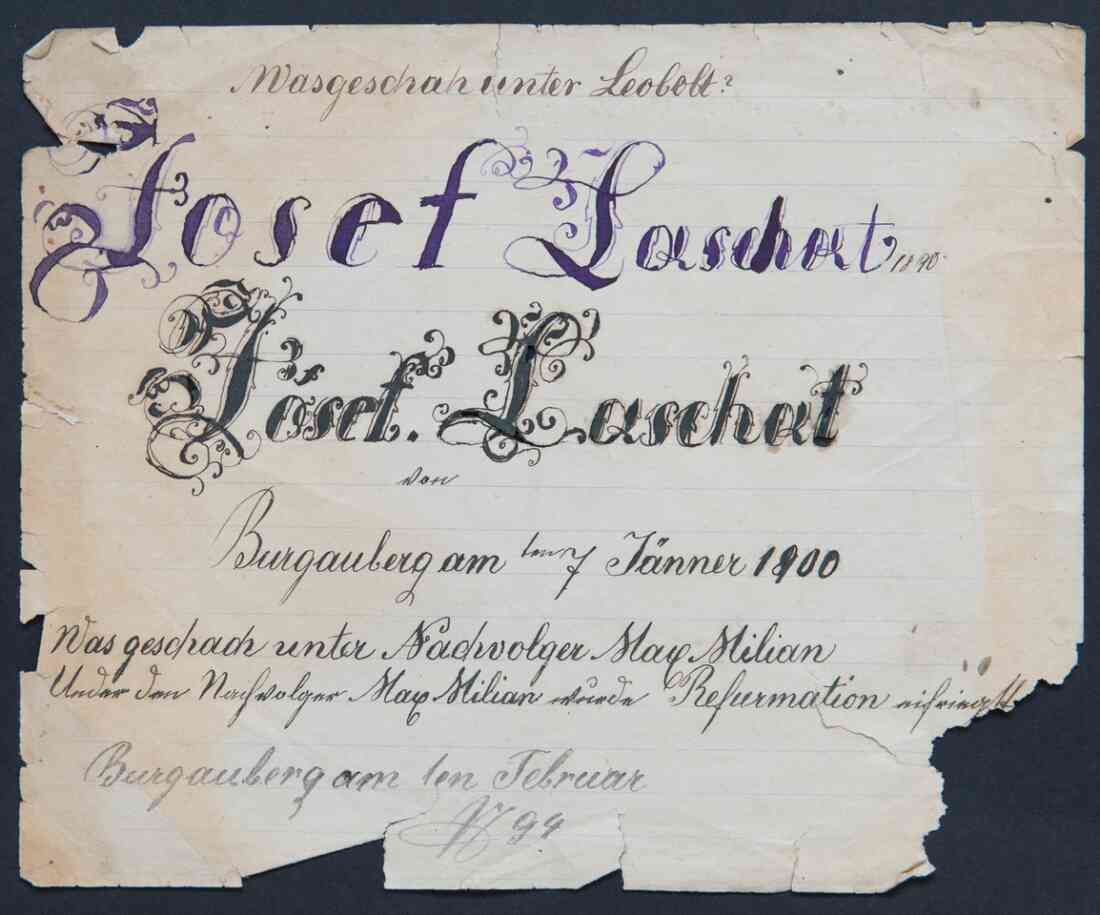 Wasgeschah unter Leobolt?
Josef Laschat 1890
Josef. Laschat
von
Burgauberg am ten 7 Jänner 1900
Was geschach unter Nachvolger Max Milian
Under den Nachvolger Max Milian wurde Refurmation
Burgauberg am 1en Februar
94